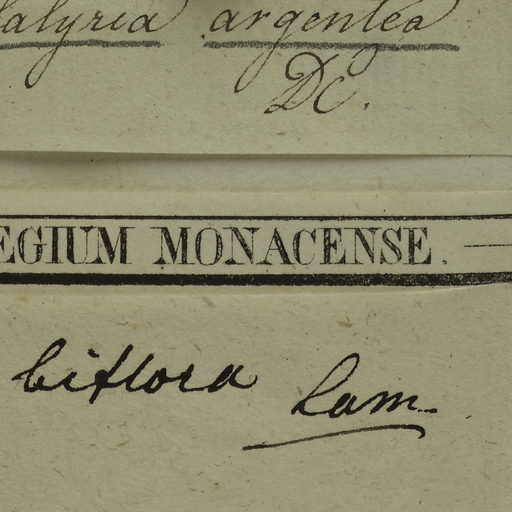 alyria argentea
DC.
EGIUM MONACENSE.
biflora Lam.